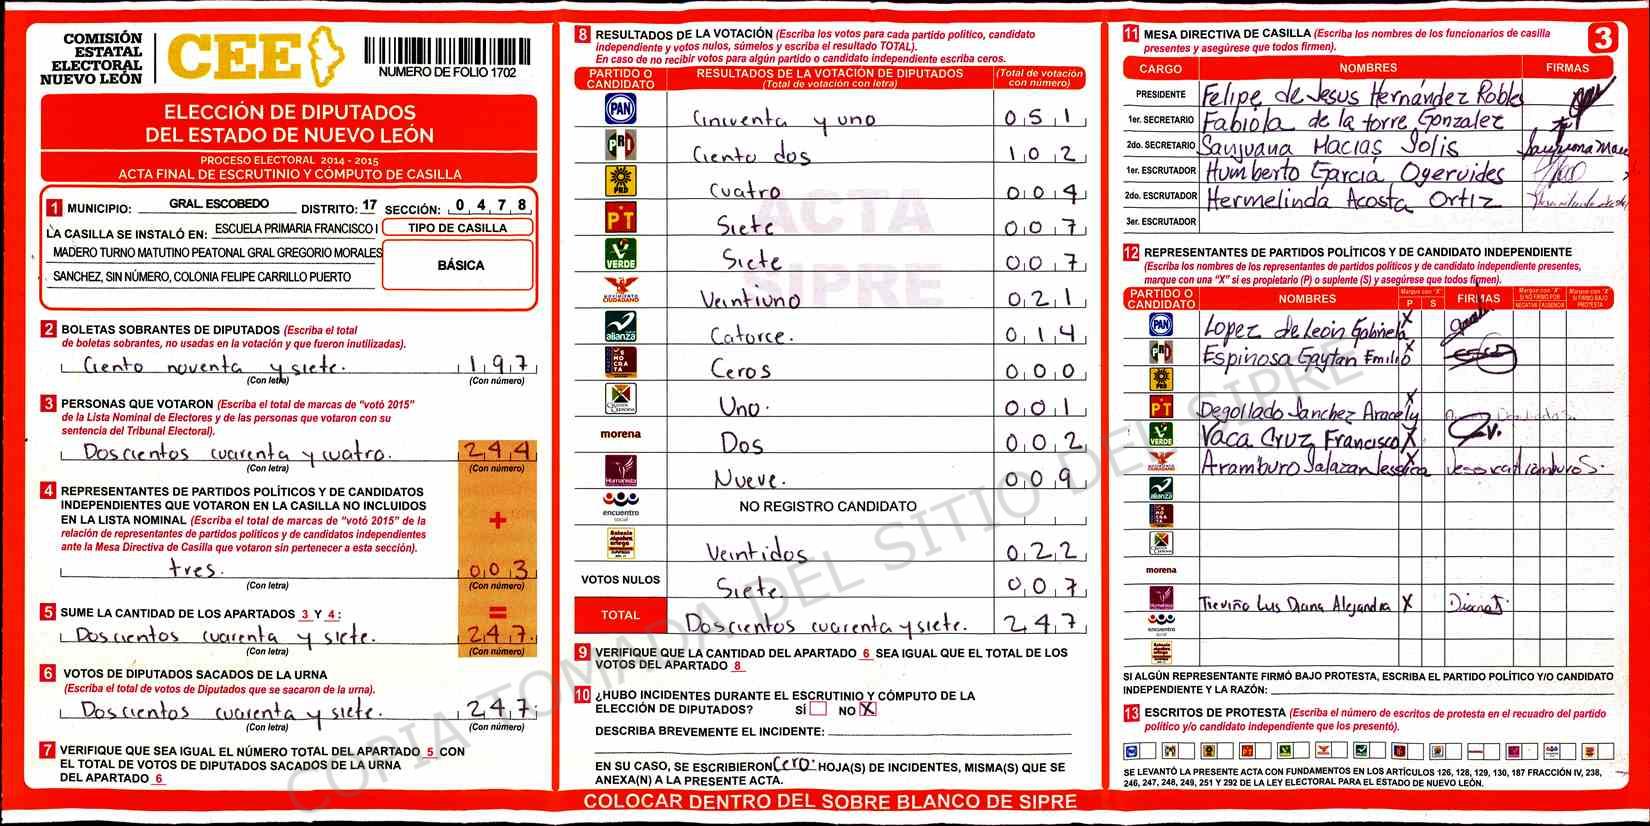 COMISIÓN
ESTATAL
ELECTORAL
NUEVO LEÓN
CEE
NUMERO DE FOLIO 1702
ELECCIÓN DE DIPUTADOS
DEL ESTADO DE NUEVO LEÓN
PROCESO ELECTORAL 2014 - 2015
ACTA FINAL DE ESCRUTINIO Y CÓMPUTO DE CASILLA
1 MUNICIPIO: GRAL. ESCOBEDO DISTRITO: 17 SECCIÓN: 0 4 7 8
LA CASILLA SE INSTALÓ EN: ESCUELA PRIMARIA FRANCISCO I
MADERO TURNO MATUTINO PEATONAL GRAL GREGORIO MORALES
SANCHEZ, SIN NÚMERO, COLONIA FELIPE CARRILLO PUERTO
TIPO DE CASILLA
BÁSICA
2 BOLETAS SOBRANTES DE DIPUTADOS (Escriba el total
de boletas sobrantes, no usadas en la votación y que fueron inutilizadas).
Ciento noventa y siete. 1 9 7
(Con letra) (Con número)
3 PERSONAS QUE VOTARON (Escriba el total de marcas de "votó 2015"
de la Lista Nominal de Electores y de las personas que votaron con su
sentencia del Tribunal Electoral).
Doscientos cuarenta y cuatro. 2 4 4
(Con letra) (Con número)
4 REPRESENTANTES DE PARTIDOS POLÍTICOS Y DE CANDIDATOS
INDEPENDIENTES QUE VOTARON EN LA CASILLA NO INCLUIDOS
EN LA LISTA NOMINAL (Escriba el total de marcas de "votó 2015" de la
relación de representantes de partidos políticos y de candidatos independientes
ante la Mesa Directiva de Casilla que votaron sin pertenecer a esta sección).
+
tres. 0 0 3
(Con letra) (Con número)
5 SUME LA CANTIDAD DE LOS APARTADOS 3 Y 4 : =
Doscientos cuarenta y siete. 2 4 7.
(Con letra) (Con número)
6 VOTOS DE DIPUTADOS SACADOS DE LA URNA
(Escriba el total de votos de Diputados que se sacaron de la urna).
Doscientos cuarenta y siete. 2 4 7.
(Con letra) (Con número)
7 VERIFIQUE QUE SEA IGUAL EL NÚMERO TOTAL DEL APARTADO 5 CON
EL TOTAL DE VOTOS DE DIPUTADOS SACADOS DE LA URNA
DEL APARTADO 6
8 RESULTADOS DE LA VOTACIÓN (Escriba los votos para cada partido político, candidato
independiente y votos nulos, súmelos y escriba el resultado TOTAL).
En caso de no recibir votos para algún partido o candidato independiente escriba ceros.
PARTIDO O CANDIDATO RESULTADOS DE LA VOTACIÓN DE DIPUTADOS (Total de votación con letra) (Total de votación con número)
PAN Cincuenta y uno 0 5 1
PRD Ciento dos 1 0 2
PRD Cuatro 0 0 4
PT Siete 0 0 7
VERDE Siete 0 0 7
MOVIMIENTO CIUDADANO Veintiuno 0 2 1
alianza Catorce. 0 1 4
DEMOCRATA Ceros 0 0 0
Uno. 0 0 1
morena Dos 0 0 2
Humanista Nueve. 0 0 9
encuentro social NO REGISTRO CANDIDATO
Veintidos 0 2 2
VOTOS NULOS Siete 0 0 7
TOTAL Doscientos cuarenta y siete. 2 4 7
ACTA
SIPRE
9 VERIFIQUE QUE LA CANTIDAD DEL APARTADO 6 SEA IGUAL QUE EL TOTAL DE LOS
VOTOS DEL APARTADO 8
10 ¿HUBO INCIDENTES DURANTE EL ESCRUTINIO Y CÓMPUTO DE LA
ELECCIÓN DE DIPUTADOS? SÍ NO X
DESCRIBA BREVEMENTE EL INCIDENTE:
EN SU CASO, SE ESCRIBIERON Cero. HOJA(S) DE INCIDENTES, MISMA(S) QUE SE
ANEXA(N) A LA PRESENTE ACTA.
COLOCAR DENTRO DEL SOBRE BLANCO DE SIPRE
11 MESA DIRECTIVA DE CASILLA (Escriba los nombres de los funcionarios de casilla
presentes y asegúrese que todos firmen).
3
CARGO NOMBRES FIRMAS
PRESIDENTE Felipe de Jesus Hernández Robles
1er. SECRETARIO Fabiola de la torre Gonzalez
2do. SECRETARIO Sanjuana Macias Solis
1er. ESCRUTADOR Humberto Garcia Ogervides
2do. ESCRUTADOR Hermelinda Acosta Ortiz
3er. ESCRUTADOR
12 REPRESENTANTES DE PARTIDOS POLÍTICOS Y DE CANDIDATO INDEPENDIENTE
(Escriba los nombres de los representantes de partidos políticos y de candidato independiente presentes,
marque con una "X" si es propietario (P) o suplente (S) y asegúrese que todos firmen).
PARTIDO O CANDIDATO NOMBRES Marque con "X" P S FIRMAS Marque con "X" SI NO FIRMÓ POR NEGATIVA O AUSENCIA Marque con "X" SI FIRMÓ BAJO PROTESTA
PAN Lopez de León Gabriela X
Espinosa Gaytan Emilio X
PRD
PT Degollado Sanchez Aracely X
VERDE Vaca Cruz Francisco X
Aramburo Salazar Jessica X Jessica Aramburo S.
alianza
morena
Treviño Lus Diana Alejandra X Diana T.
encuentro social
SI ALGÚN REPRESENTANTE FIRMÓ BAJO PROTESTA, ESCRIBA EL PARTIDO POLÍTICO Y/O CANDIDATO
INDEPENDIENTE Y LA RAZÓN:
13 ESCRITOS DE PROTESTA (Escriba el número de escritos de protesta en el recuadro del partido
político y/o candidato independiente que los presentó).
SE LEVANTÓ LA PRESENTE ACTA CON FUNDAMENTOS EN LOS ARTÍCULOS 126, 128, 129, 130, 187 FRACCIÓN IV, 238,
246, 247, 248, 249, 251 Y 292 DE LA LEY ELECTORAL PARA EL ESTADO DE NUEVO LEÓN.
COPIA TOMADA DEL SITIO DEL SIPRE